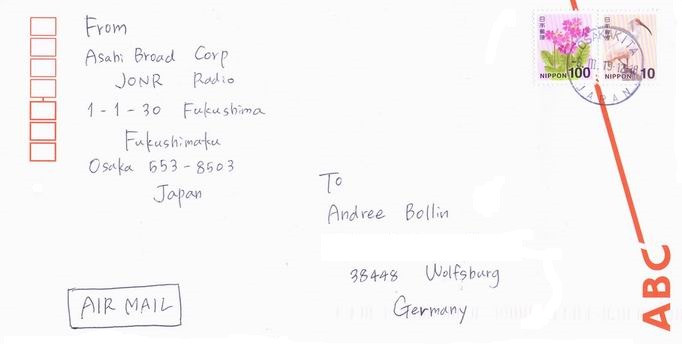 From
Asahi Broad Corp
JONR Radio
1-1-30 Fukushima
Fukushimaku
Osaka 553-8503
Japan
To
Andree Bollin
38448 Wolfsburg
Germany
AIR MAIL
日本郵便
NIPPON 100
日本郵便
NIPPON 10
OSAKAKITA
JAPAN
ABC